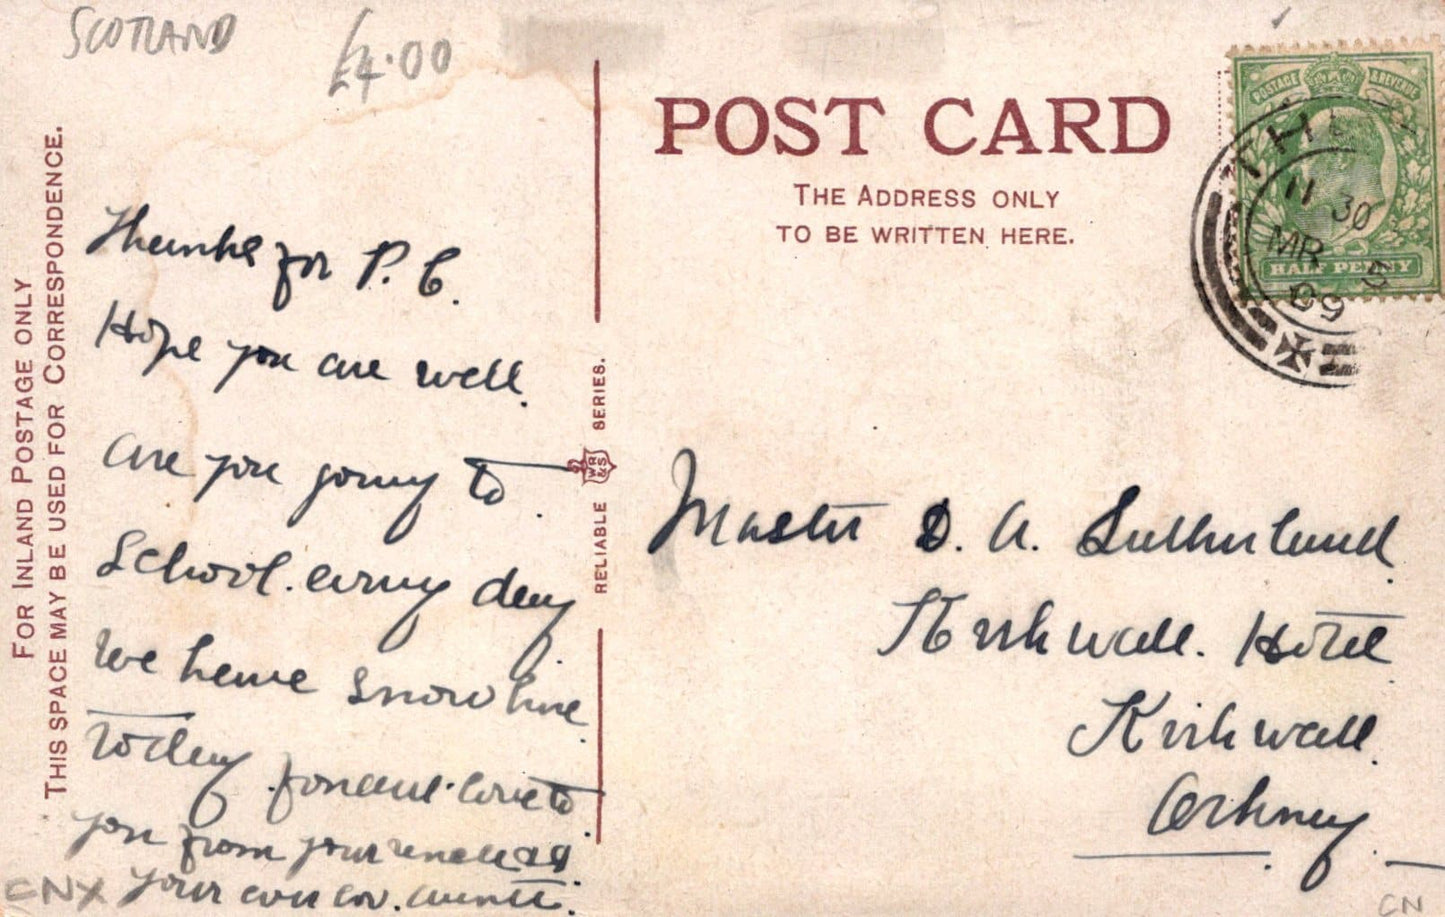 SCOTLAND
£4.00
POST CARD
THE ADDRESS ONLY
TO BE WRITTEN HERE.
FOR INLAND POSTAGE ONLY
THIS SPACE MAY BE USED FOR CORRESPONDENCE.
POSTAGE & REVENUE
HALF PENNY
11 30
MR 5
09
Thanks for P. C.
Hope you are well.
are you going to
School. every day
We have snow here
today fondest love to
you from your uncle as
your ever lov. auntie.
RELIABLE WR&S SERIES.
Master D. A. Sutherland
Kirkwall. Hotel
Kirkwall.
Orkney.
CNX
CN